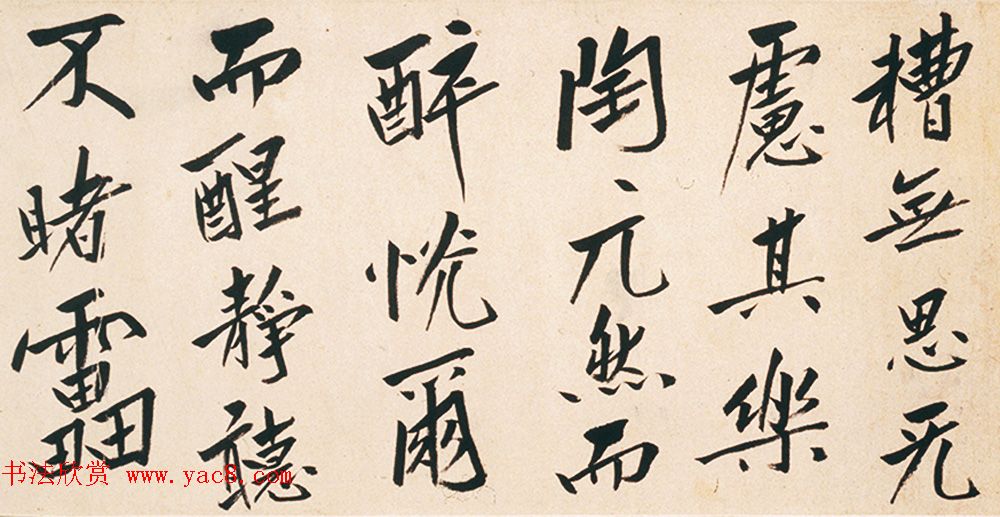 槽無思无
慮其樂
陶〻兀然而
醉恍爾
而醒靜聽
不睹靁
书法欣赏 www.yac8.com